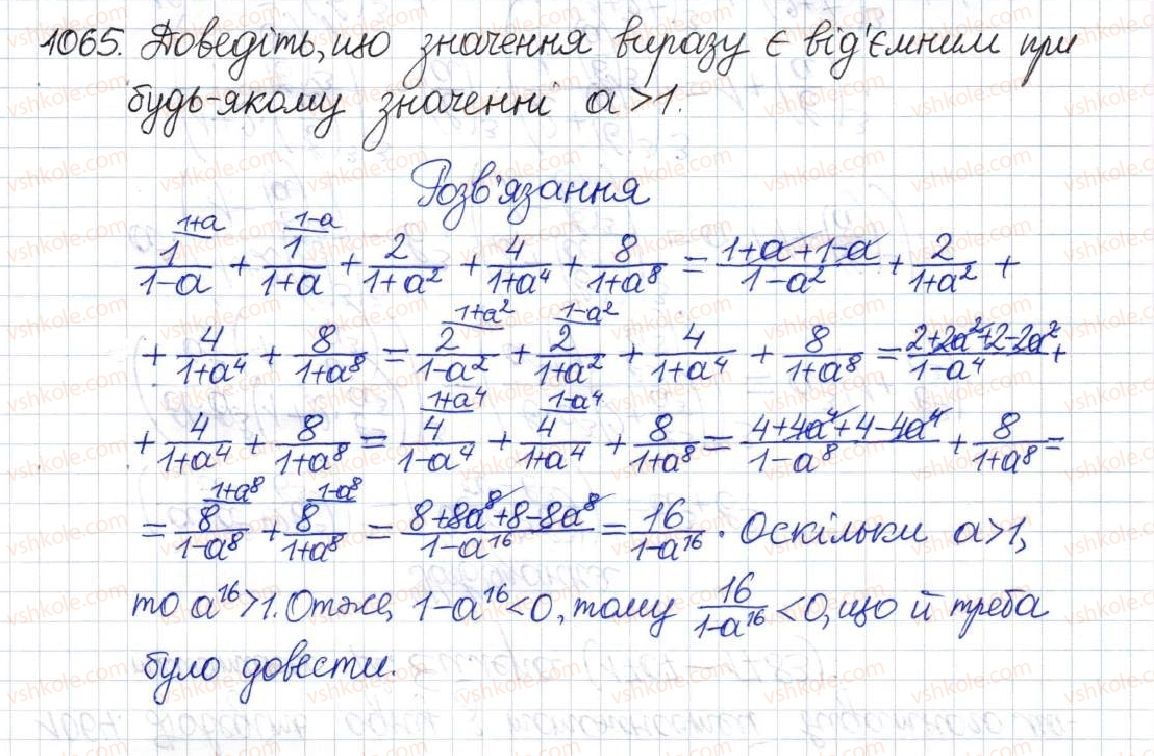 1065. Доведіть, що значення виразу є від'ємним при
будь-якому значенні a>1.
Розв'язання
1/(1-a) (1+a) + 1/(1+a) (1-a) + 2/(1+a²) + 4/(1+a⁴) + 8/(1+a⁸) = (1+a+1-a)/(1-a²) + 2/(1+a²) +
+ 4/(1+a⁴) + 8/(1+a⁸) = 2/(1-a²) (1+a²) + 2/(1+a²) (1-a²) + 4/(1+a⁴) + 8/(1+a⁸) = (2+2a²+2-2a²)/(1-a⁴) +
+ 4/(1+a⁴) + 8/(1+a⁸) = 4/(1-a⁴) (1+a⁴) + 4/(1+a⁴) (1-a⁴) + 8/(1+a⁸) = (4+4a⁴+4-4a⁴)/(1-a⁸) + 8/(1+a⁸) =
= 8/(1-a⁸) (1+a⁸) + 8/(1+a⁸) (1-a⁸) = (8+8a⁸+8-8a⁸)/(1-a¹⁶) = 16/(1-a¹⁶). Оскільки a>1,
то a¹⁶>1. Отже, 1-a¹⁶<0, тому 16/(1-a¹⁶) <0, що й треба
було довести.